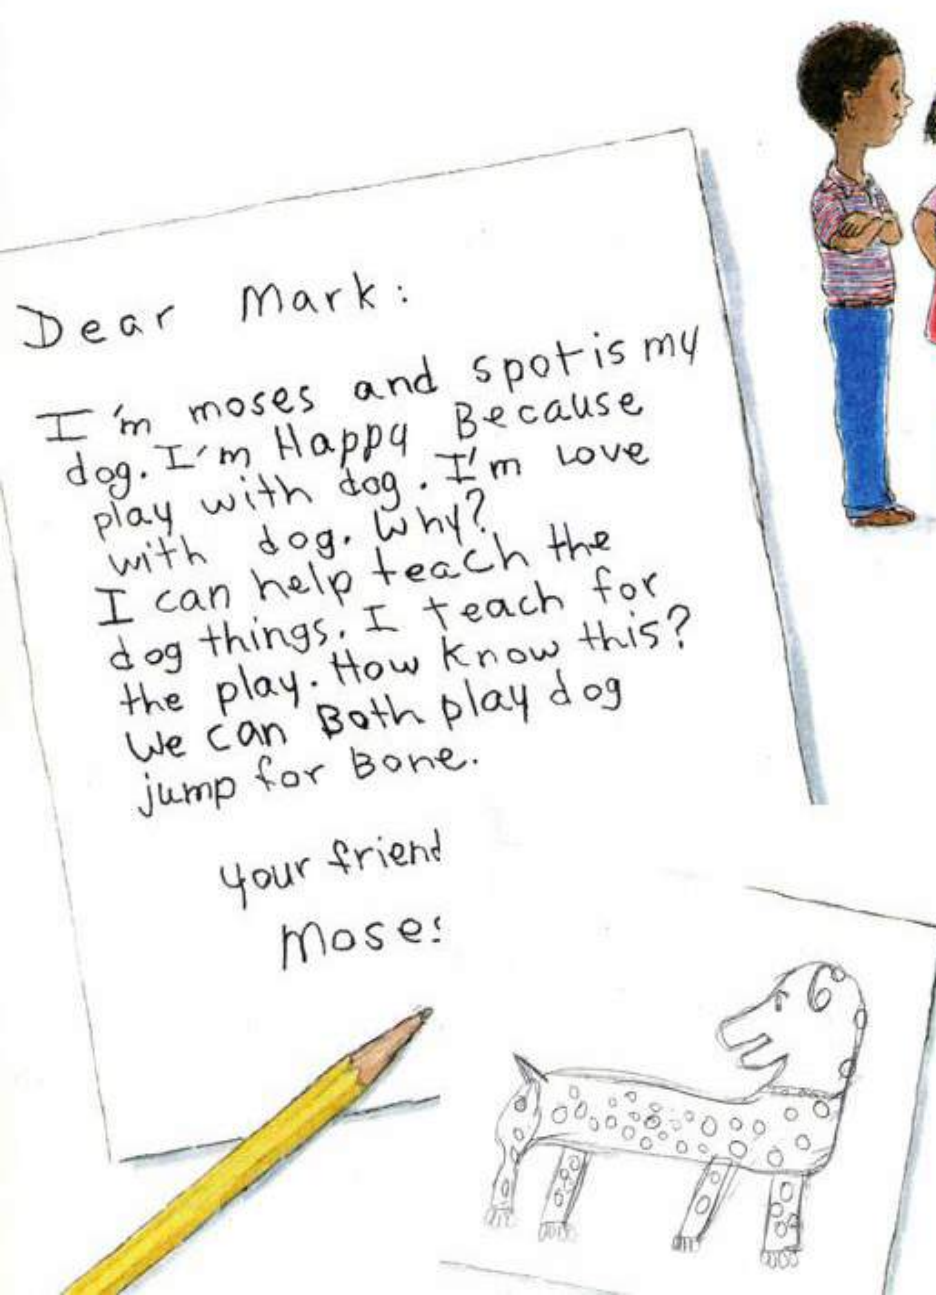 Dear Mark:
I'm moses and spot is my
dog. I'm Happy Because
play with dog. I'm Love
with dog. Why?
I can help teach the
dog things. I teach for
the play. How know this?
We can Both play dog
jump for Bone.
your friend
Moses